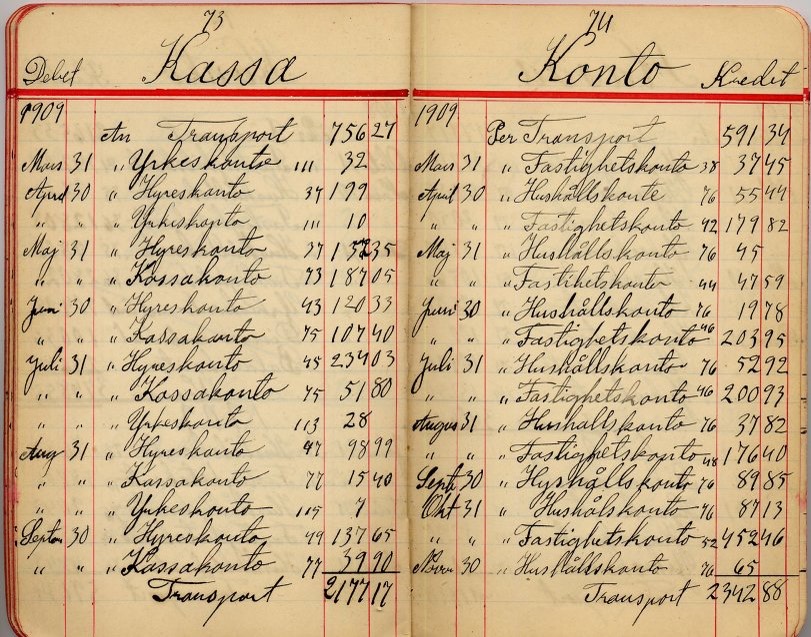 73
Debet Kassa
1909
An Transport 756 27
Mars 31 " Yrkeskonto 111 32
April 30 " Hyreskonto 37 199
" " " Yrkeskonto 111 10
Maj 31 " Hyreskonto 37 35
" " " Kassakonto 73 187 05
Juni 30 " Hyreskonto 43 120 33
" " " Kassakonto 75 107 40
Juli 31 " Hyreskonto 45 234 03
" " " Kassakonto 75 51 80
" " " Yrkeskonto 113 28
Aug 31 " Hyreskonto 47 98 99
" " " Kassakonto 77 15 40
" " " Yrkeskonto 115 7
Septem 30 " Hyreskonto 49 137 65
" " " Kassakonto 77 39 90
Transport 2177 17
74
Konto Kredit
1909
Per Transport 591 34
Mars 31 " Fastighetskonto 38 37 45
April 30 " Hushållskonto 76 55 44
" " " Fastighetskonto 42 179 82
Maj 31 " Hushållskonto 76 45
" " " Fastihetskonto 44 47 59
Juni 30 " Hushållskonto 76 19 78
" " " Fastighetskonto 46 203 95
Juli 31 " Hushållskonto 76 52 92
" " " Fastighetskonto 46 200 93
Augus 31 " Hushallskonto 76 37 82
" " " Fastighetskonto 48 176 40
Sept 30 " Hyshållskonto 76 89 85
Okt 31 " Hushålskonto 76 87 13
" " " Fastighetskonto 52 452 46
Novem 30 " Hushållskonto 76 65
Transport 2342 88